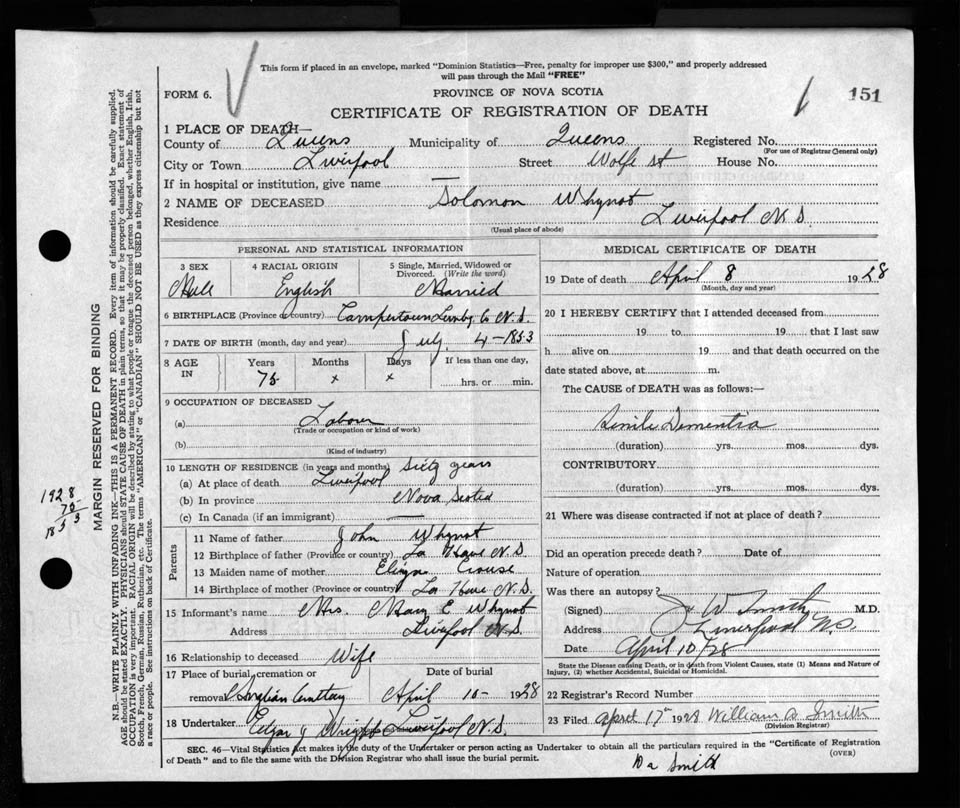 This form if placed in an envelope, marked "Dominion Statistics—Free, penalty for improper use $300," and properly addressed
will pass through the Mail "FREE"
FORM 6.
PROVINCE OF NOVA SCOTIA
CERTIFICATE OF REGISTRATION OF DEATH
151
1 PLACE OF DEATH—
County of Queens Municipality of Queens Registered No.
(For use of Registrar General only)
City or Town Liverpool Street Wolfe st House No.
If in hospital or institution, give name —
2 NAME OF DECEASED Solomon Whynot
Residence Liverpool N.S.
(Usual place of abode)
PERSONAL AND STATISTICAL INFORMATION
3 SEX 4 RACIAL ORIGIN 5 Single, Married, Widowed or
Divorced. (Write the word)
Male English Married
6 BIRTHPLACE (Province or Country) Lunbg Co N.S.
7 DATE OF BIRTH (month, day and year) July 4-1853
8 AGE Years Months Days If less than one day,
IN 75 x x hrs. or min.
9 OCCUPATION OF DECEASED
(a) Labour
(Trade or occupation or kind of work)
(b)
(Kind of industry)
10 LENGTH OF RESIDENCE (in years and months) sixty years
(a) At place of death Liverpool
(b) In province Nova Scotia
(c) In Canada (if an immigrant) —
Parents
11 Name of father John Whynot
12 Birthplace of father (Province or country) La Have N.S.
13 Maiden name of mother Eliza Crouse
14 Birthplace of mother (Province or country) La Have N.S.
15 Informant's name Mrs. Mary E Whynot
Address Liverpool N.S.
16 Relationship to deceased Wife
17 Place of burial, cremation or Date of burial
removal April 10- 1928
18 Undertaker Edgar J Wright Liverpool N.S.
MEDICAL CERTIFICATE OF DEATH
19 Date of death April 8 1928
(Month, day and year)
20 I HEREBY CERTIFY that I attended deceased from
19 to 19 that I last saw
h alive on 19 and that death occurred on the
date stated above, at m.
The CAUSE of DEATH was as follows:—
Senile Dementia
(duration) yrs. mos. dys.
CONTRIBUTORY
(duration) yrs. mos. dys.
21 Where was disease contracted if not at place of death?
Did an operation precede death? Date of
Nature of operation
Was there an autopsy?
(Signed) J W Smith M.D.
Address Liverpool N.S.
Date April 10/28
State the Disease causing Death, or in death from Violent Causes, state (1) Means and Nature of
Injury, (2) whether Accidental, Suicidal or Homicidal.
22 Registrar's Record Number
23 Filed April 17th 1928 William A Smith
(Division Registrar)
SEC. 46—Vital Statistics Act makes it the duty of the Undertaker or person acting as Undertaker to obtain all the particulars required in the "Certificate of Registration
of Death" and to file the same with the Division Registrar who shall issue the burial permit.
(OVER)
W a Smith
MARGIN RESERVED FOR BINDING
N.B.—WRITE PLAINLY WITH UNFADING INK—THIS IS A PERMANENT RECORD. Every item of information should be carefully supplied.
AGE should be stated EXACTLY. PHYSICIANS should STATE CAUSE OF DEATH in plain terms, so that it may be properly classified. Exact statement of
OCCUPATION is very important. RACIAL ORIGIN will be described by stating to what people or tongue the deceased person belonged, whether English, Irish,
Scotch, French, German, Russian, Ruthenian, etc. The terms "AMERICAN" or "CANADIAN" SHOULD NOT BE USED as they express citizenship but not
a race or people. See instructions on back of Certificate.
1928
75
1853